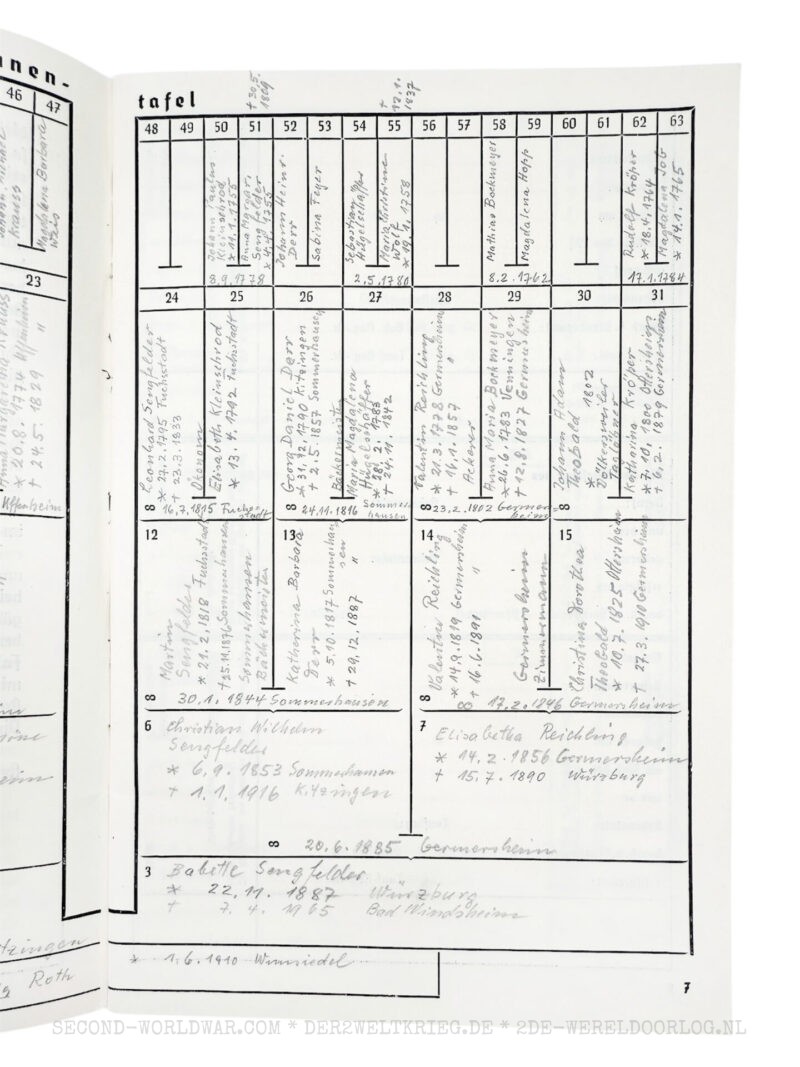 nnen-
46 47
Magdalena Barbara
23
* 20.8.1774 Uffenheim
+ 24.5.1829 "
Uffenheim
tafel
+30.5.
1809
+
13.1.
1837
48 49 50 51 52 53 54 55 56 57 58 59 60 61 62 63
Johann Paulus
Kleinschrod
* 11.1.1755
Anna Margar.
Sengfelder
* 4.4.1755
8.9.1778
Johann Heinr.
Derr
Sabina Feyer
Sebastian
Hügelschäffer
Maria Christine
Wolf
* 19.1.1758
2.5.1780
Mathias Bockmeyer
Magdalena Hopp
8.2.1762
Rudolf Kröper
* 18.4.1764
Magdalena Job
* 14.1.1765
17.1.1784
24 25 26 27 28 29 30 31
Leonhard Sengfelder
* 27.2.1795 Fuchsstadt
+ 23.3.1833
Ökonom
Elisabeth Kleinschrod
* 13.4.1792 Fuchsstadt
8 16.7.1815 Fuchs-
stadt
Georg Daniel Derr
* 31.12.1790 Kitzingen
+ 2.5.1857 Sommerhausen
Bäckermeister
Maria Magdalena
Hügelschäffer
* 28.2.1783
+ 24.11.1842
8 24.11.1816 Sommer-
hausen
Valentin Reichling
* 21.3.1778 Germersheim
+ 16.1.1857 "
Ackerer
Anna Maria Bockmeyer
* 26.6.1783 Venningen
+ 12.8.1827 Germersheim
8 23.2.1802 Germers-
heim
Johann Adam
Theobald
* 1802
Völkersweiler
Tagelöhner
Katharina Kröper
* 7.10.1800 Ottersheim?
+ 6.2.1879 Germersheim
8
12 13 14 15
Martin
Sengfelder
* 21.2.1818 Fuchsstadt
Sommerhausen
Sommerhausen
Bäckermeister
Katherina Barbara
Derr
* 5.10.1817 Sommerhau
sen
+ 29.12.1887 "
8 30.1.1844 Sommerhausen
Valentin Reichling
* 14.9.1819 Germersheim
+ 16.6.1891 "
Germersheim
Zimmermann
Christina Dorothea
Theobald
* 10.7.1825 Ottersheim
+ 27.3.1910 Germersheim
8 17.2.1846 Germersheim
6 Christian Wilhelm
Sengfelder
* 6.9.1853 Sommerhausen
+ 1.1.1916 Kitzingen
7 Elisabetha Reichling
* 14.2.1856 Germersheim
+ 15.7.1890 Würzburg
8 20.6.1885 Germersheim
3 Babette Sengfelder
* 22.11.1887 Würzburg
+ 7.4.1965 Bad Windsheim
* 1.6.1910 Wunsiedel
Roth
7
SECOND-WORLDWAR.COM * DER2WELTKRIEG.DE * 2DE-WERELDOORLOG.NL